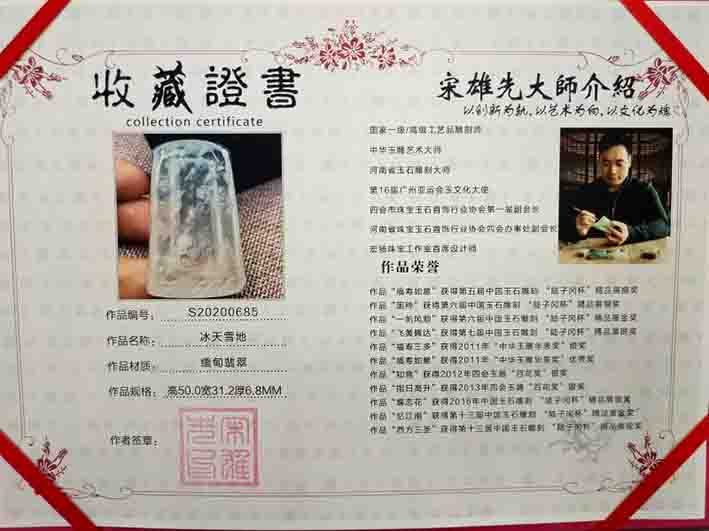 收藏證書
collection certificate
作品编号: S20200685
作品名称: 冰天雪地
作品材质: 缅甸翡翠
作品规格: 高50.0宽31.2厚6.8MM
作者签章:
宋雄先大師介紹
以创新为轨,以艺术为向,以文化为魂
国家一级/高级工艺品雕刻师
中华玉雕艺术大师
河南省玉石雕刻大师
第16届广州亚运会玉文化大使
四会市珠宝玉石首饰行业协会第一届副会长
河南省珠宝玉石首饰行业协会四会办事处副会长
宏扬珠宝工作室首席设计师
作品荣誉
作品“福寿如意”获得第五届中国玉石雕刻 “陆子冈杯”精品展银奖
作品“国粹”获得第六届中国玉石雕刻 “陆子冈杯”精品展铜奖
作品“一帆风顺”获得第六届中国玉石雕刻 “陆子冈杯”精品展金奖
作品“飞黄腾达”获得第七届中国玉石雕刻 “陆子冈杯”精品展铜奖
作品“福寿三多”获得2011年“中华玉雕华表奖”银奖
作品“福寿如意”获得2011年“中华玉雕华表奖”优秀奖
作品“知竟”获得2012年四会玉器“百花奖”银奖
作品“指日高升”获得2013年四会玉器“百花奖”银奖
作品“蝶恋花”获得2016年中国玉石雕刻 “陆子冈杯”精品展银奖
作品“忆江南”获得第十三届中国玉石雕刻 “陆子冈杯”精品展金奖
作品“西方三圣”获得第十三届中国玉石雕刻 “陆子冈杯”精品展银奖